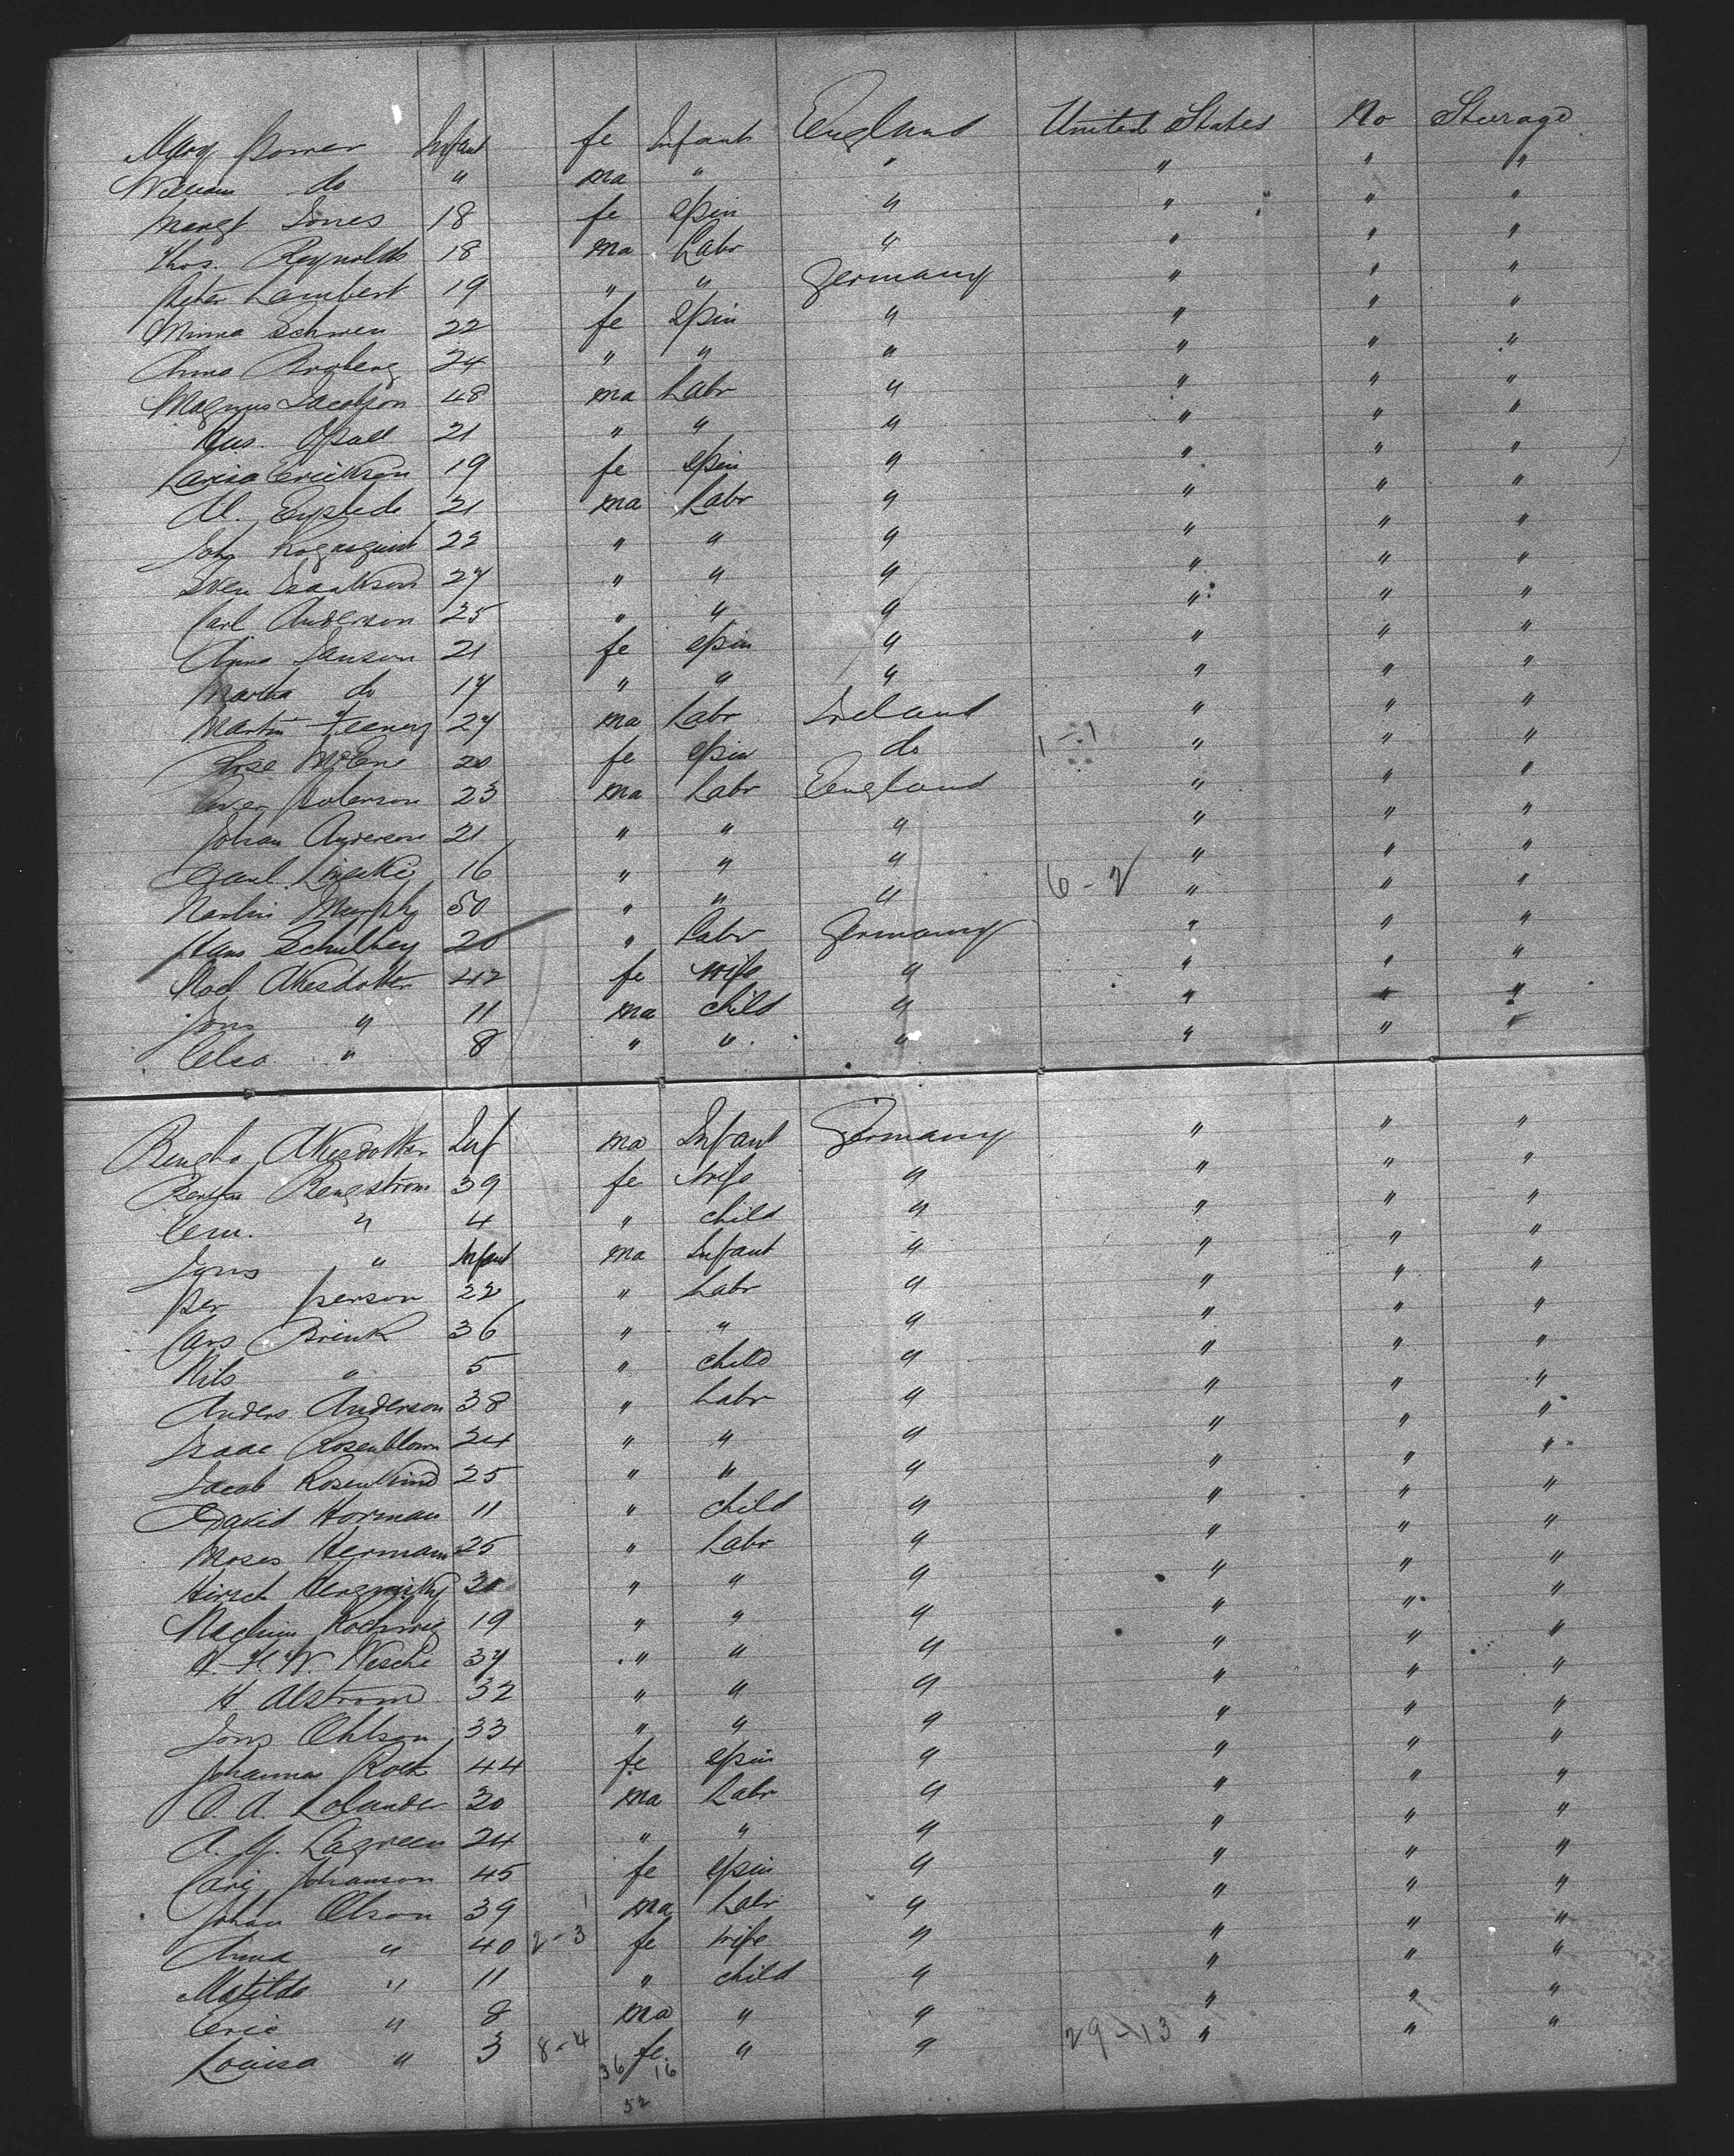 Mary Power Infant fe Infant England United States No Steerage
William do " ma " " " " "
Margt Jones 18 fe Spin " " " "
Thos. Reynolds 18 ma Labr " " " "
Peter Lambert 19 " " Germany " " "
Minna Schwen 22 fe Spin " " " "
Anna Broberg 24 " " " " " "
Magnus Jacobson 48 ma Labr " " " "
21 " " " " " "
Erickson 19 fe Spin " " " "
21 ma Labr " " " "
John 22 " " " " " "
Sven Isaakson 27 " " " " " "
Carl Anderson 25 " " " " " "
Anna Janson 21 fe Spin " " " "
Martha do 17 " " " " " "
Martin Feeney 27 ma Labr Ireland " " "
Rose 20 fe Spin do 1-1 " " "
23 ma Labr England " " "
Johan Anderson 21 " " " " " "
16 " " " " " "
Martin Murphy 50 " " " 6-2 " " "
Hans 20 " Labr Germany " " "
Akesdotter 42 fe wife " " " "
Jons " 11 ma child " " " "
" 8 " " " " " "
Bengta Akesdotter Inf ma Infant Germany " " "
Bengstrom 39 fe wife " " " "
" 4 " child " " " "
Jons " Infant ma Infant " " " "
Per Person 22 " Labr " " " "
Lars Brink 36 " " " " " "
Nils " 5 " child " " " "
Anders Anderson 38 " Labr " " " "
Isaac Rosenblom 24 " " " " " "
Jacob Rosenkind 25 " " " " " "
David Horman 11 " child " " " "
Moses Hermann 25 " Labr " " " "
Hirsch 30 " " " " " "
19 " " " " " "
H. H. W. Nesche 37 " " " " " "
H. Alstrom 32 " " " " " "
Jons Ohlson 33 " " " " " "
Johanna Rock 44 fe Spin " " " "
30 ma Labr " " " "
24 " " " " " "
Johanson 45 fe Spin " " " "
Johan Olson 39 1 ma Labr " " " "
Anna " 40 2-3 fe wife " " " "
Matilda " 11 " child " " " "
Eric " 8 ma " " " " "
Louisa " 3 8-4 fe " " 29-13 " " "
36 16
52